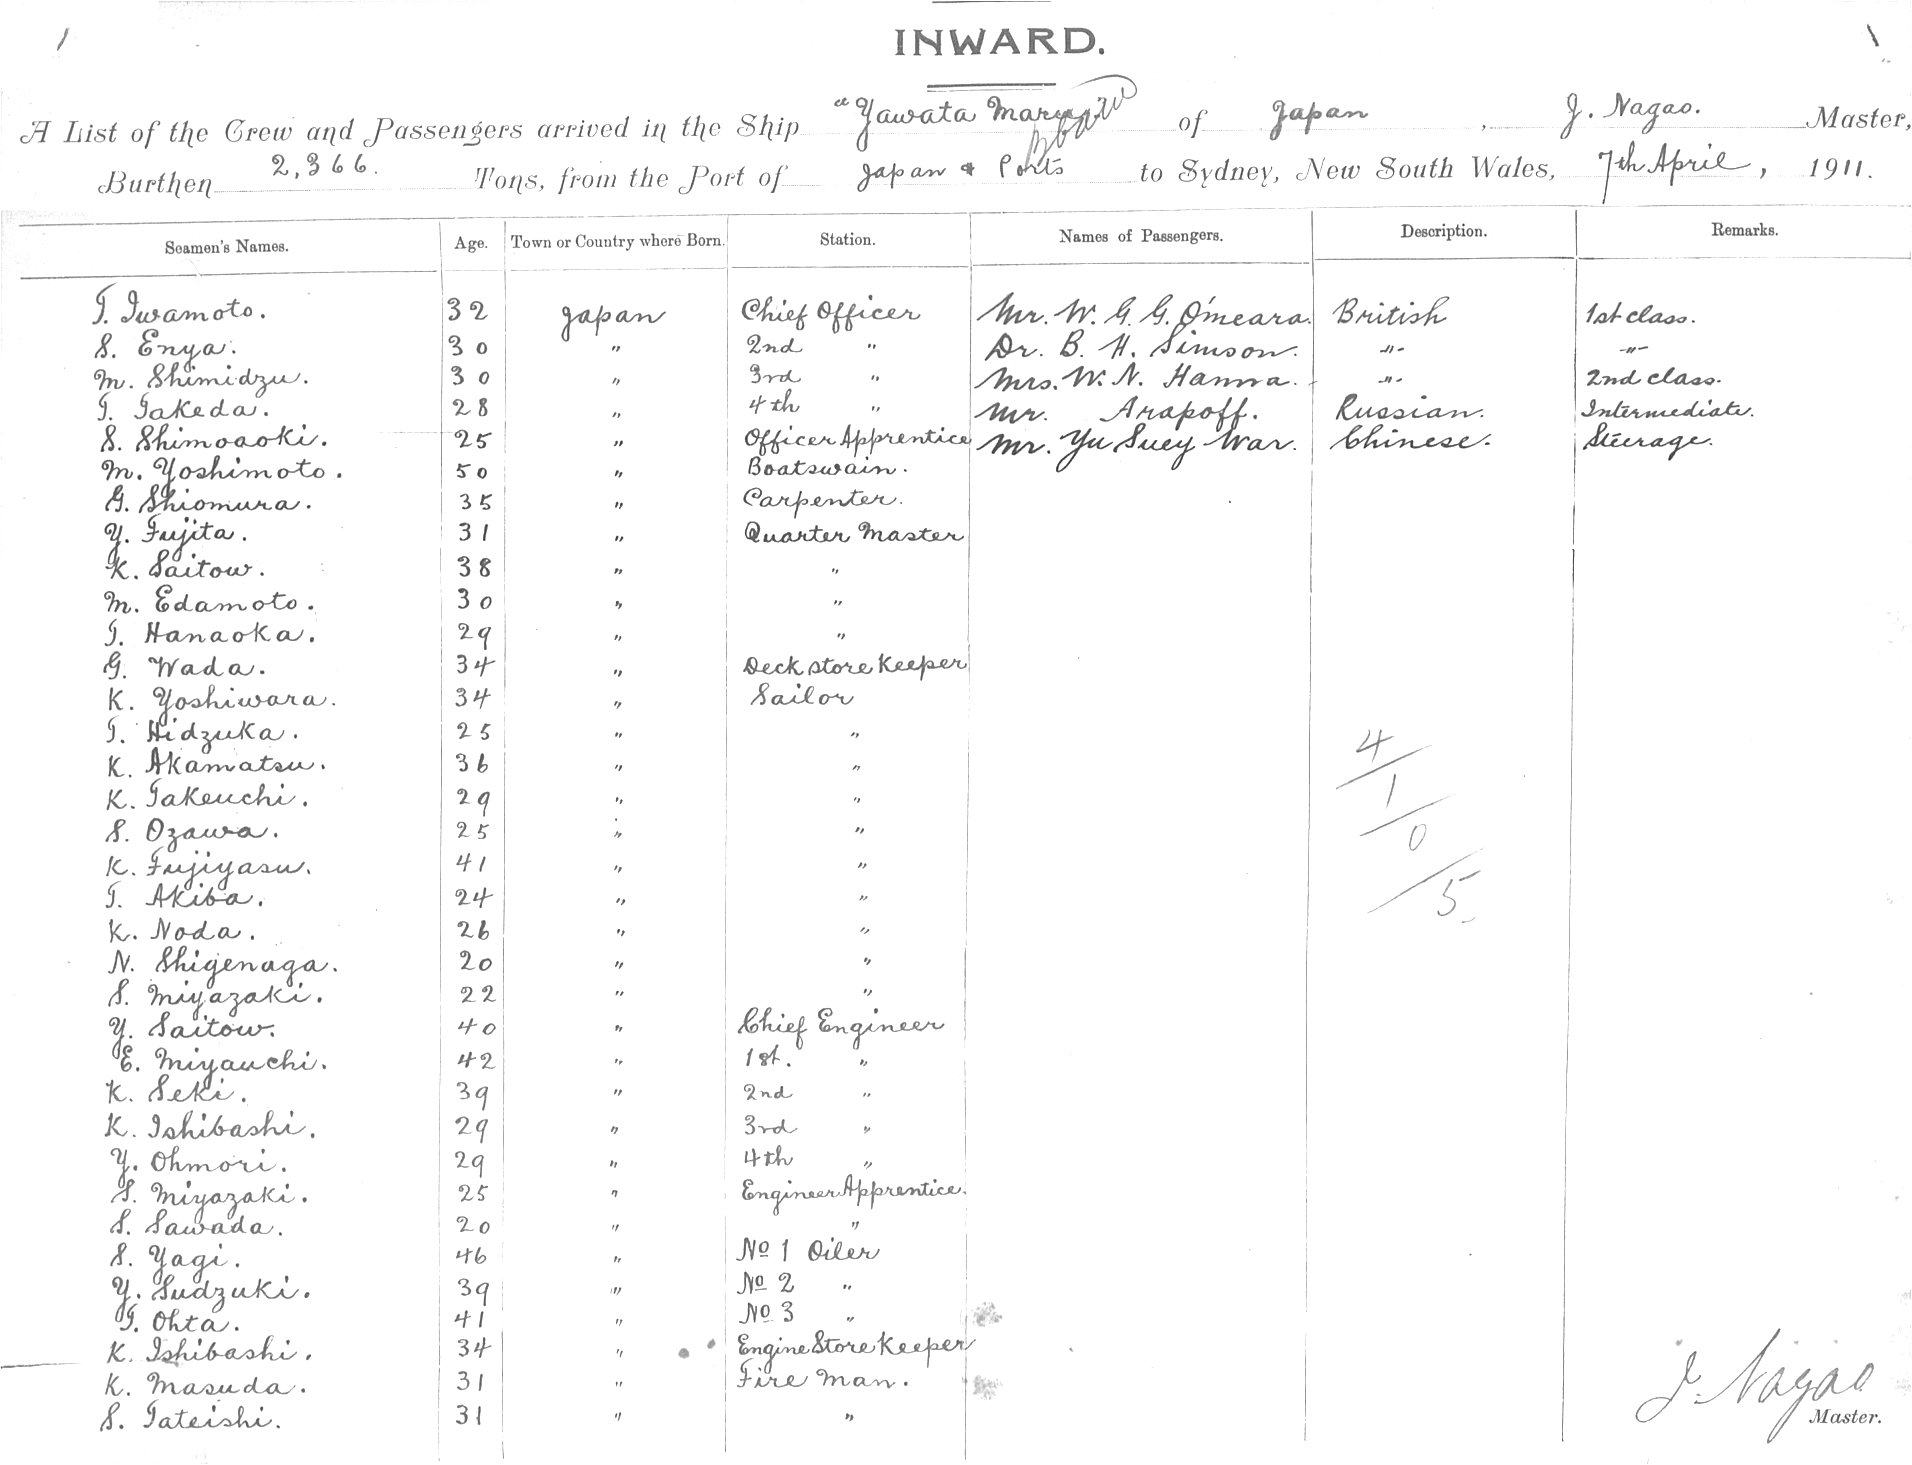 INWARD.
A List of the Crew and Passengers arrived in the Ship "Yawata Maru" of Japan, J. Nagao. Master,
Burthen 2,366. Tons, from the Port of Japan & Ports to Sydney, New South Wales, 7th April, 1911.
Seamen's Names. Age. Town or Country where Born. Station. Names of Passengers. Description. Remarks.
T. Iwamoto. 32 Japan Chief Officer Mr. W. G. G. O'meara. British 1st class.
S. Enya. 30 " 2nd " Dr. B. H. Simson. -"- -"-
M. Shimidzu. 30 " 3rd " Mrs. W. N. Hanna. -"- 2nd class.
T. Takeda. 28 " 4th " Mr. Arapoff. Russian. Intermediate.
S. Shimoaoki. 25 " Officer Apprentice Mr. Yu Suey War. Chinese. Steerage.
M. Yoshimoto. 50 " Boatswain.
G. Shiomura. 35 " Carpenter.
Y. Fujita. 31 " Quarter Master
K. Saitow. 38 " "
M. Edamoto. 30 " "
T. Hanaoka. 29 " "
G. Wada. 34 " Deck store Keeper
K. Yoshiwara. 34 " Sailor
T. Hidzuka. 25 " "
K. Akamatsu. 36 " " 4
K. Takeuchi. 29 " " 1
S. Ozawa. 25 " " 0
K. Fujiyasu. 41 " "
T. Akiba. 24 " " 5
K. Noda. 26 " "
N. Shigenaga. 20 " "
S. Miyazaki. 22 " "
Y. Saitow. 40 " Chief Engineer
E. Miyauchi. 42 " 1st. "
K. Seki. 39 " 2nd "
K. Ishibashi. 29 " 3rd "
Y. Ohmori. 29 " 4th "
S. Miyazaki. 25 " Engineer Apprentice.
S. Sawada. 20 " "
S. Yagi. 46 " No 1 Oiler
Y. Sudzuki. 39 " No 2 "
T. Ohta. 41 " No 3 "
K. Ishibashi. 34 " Engine Store Keeper
K. Masuda. 31 " Fire Man. J. Nagao
S. Tateishi. 31 " " Master.